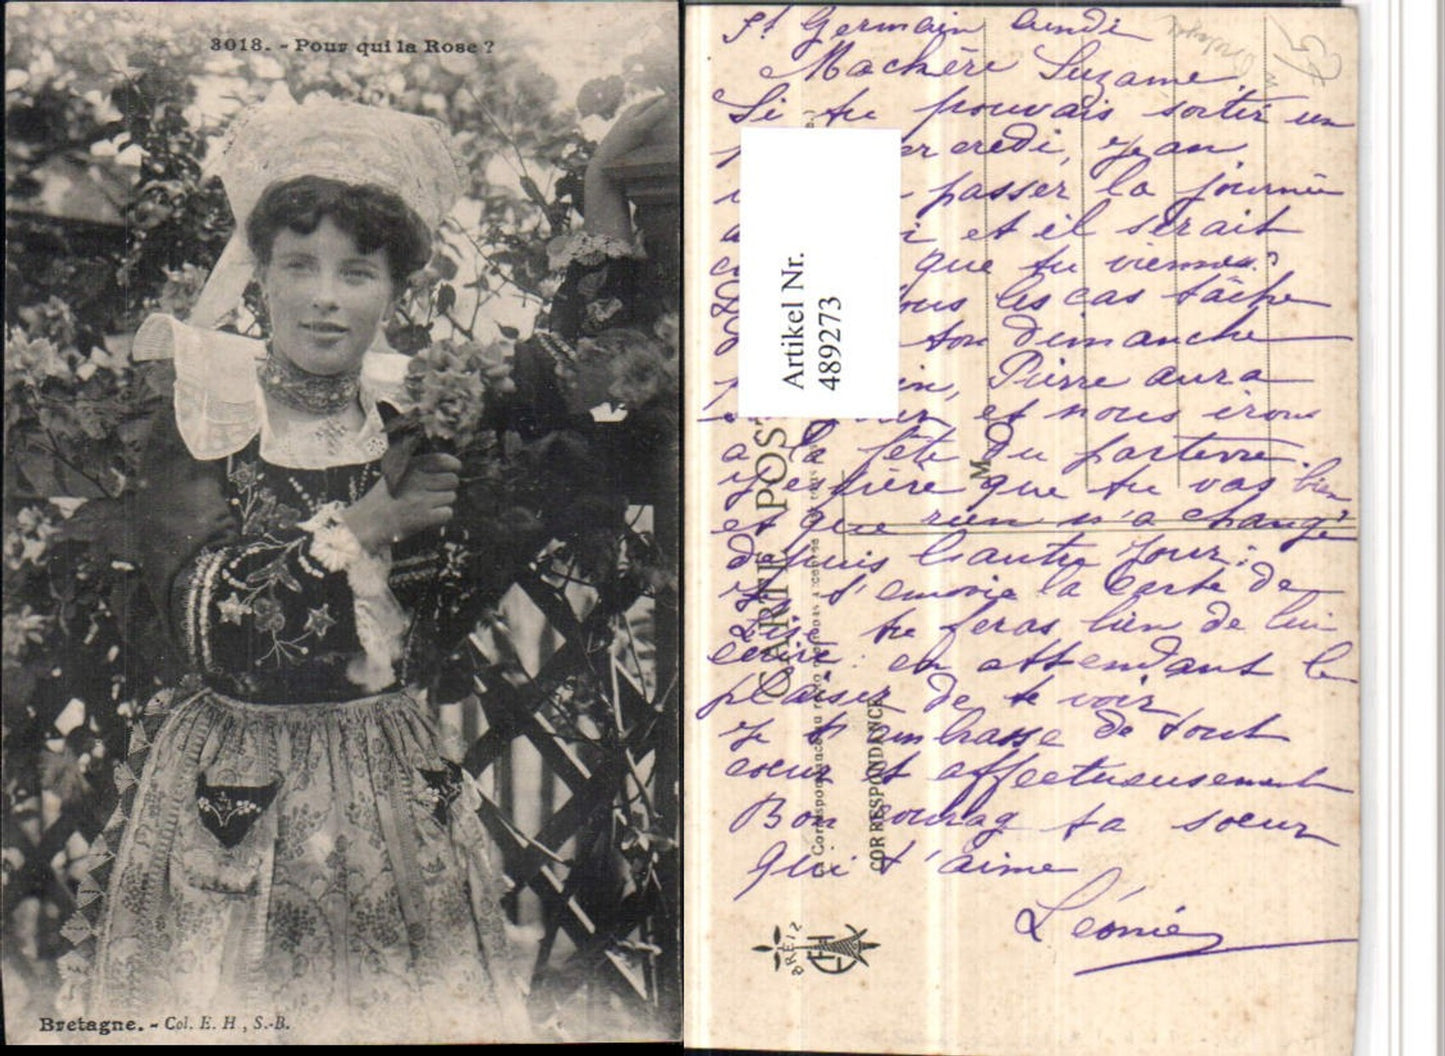 3018. - Pour qui la Rose ?
Bretagne. - Col. E. H , S.-B.
St Germain Lundi
Ma chère Suzanne
Si tu pouvais sortir un
credi, Jean
passer la journée
et il serait
que tu viennes
les cas tâche
ton dimanche
Pierre aura
et nous irons
a la fête du parterre.
J'espère que tu vas bien
et que rien n'a changé
depuis l'autre jour.
t'envoie la carte de
Lise tu feras bien de lui
écrire. en attendant le
plaisir de te voir
Je t'embrasse de tout
coeur et affectueusement
Bon courage ta soeur
qui t'aime
Léonie
Artikel Nr.
489273
CARTE POST
CORRESPONDANCE
M
BREIZ